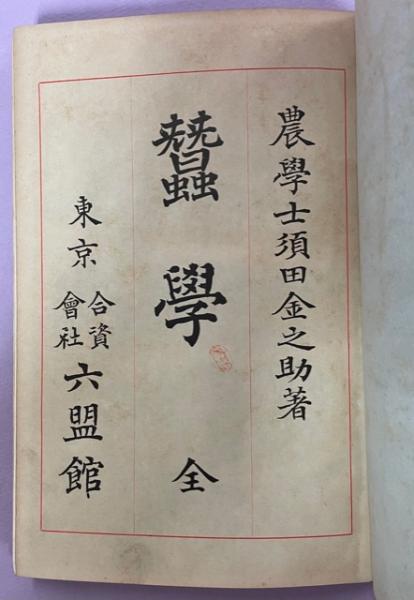 農學士須田金之助著
蠶學 全
東京 合資會社 六盟館